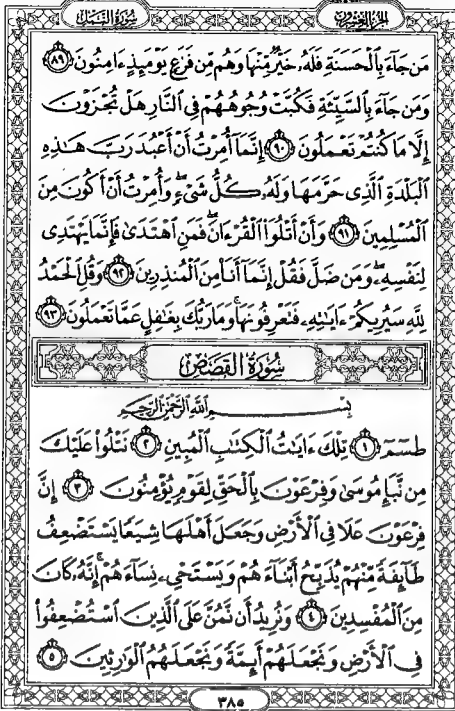 الجزء العشرون سورة النمل
مَن جَآءَ بِٱلْحَسَنَةِ فَلَهُۥ خَيْرٌ مِّنْهَا وَهُم مِّن فَزَعٍ يَوْمَئِذٍ ءَامِنُونَ ٨٩
وَمَن جَآءَ بِٱلسَّيِّئَةِ فَكُبَّتْ وُجُوهُهُمْ فِي ٱلنَّارِ هَلْ تُجْزَوْنَ
إِلَّا مَا كُنتُمْ تَعْمَلُونَ ٩٠ إِنَّمَآ أُمِرْتُ أَنْ أَعْبُدَ رَبَّ هَـٰذِهِ
ٱلْبَلْدَةِ ٱلَّذِي حَرَّمَهَا وَلَهُۥ كُلُّ شَيْءٍ ۖ وَأُمِرْتُ أَنْ أَكُونَ مِنَ
ٱلْمُسْلِمِينَ ٩١ وَأَنْ أَتْلُوَا۟ ٱلْقُرْءَانَ ۖ فَمَنِ ٱهْتَدَىٰ فَإِنَّمَا يَهْتَدِي
لِنَفْسِهِۦ ۖ وَمَن ضَلَّ فَقُلْ إِنَّمَآ أَنَا۠ مِنَ ٱلْمُنذِرِينَ ٩٢ وَقُلِ ٱلْحَمْدُ
لِلَّهِ سَيُرِيكُمْ ءَايَـٰتِهِۦ فَتَعْرِفُونَهَا ۚ وَمَا رَبُّكَ بِغَـٰفِلٍ عَمَّا تَعْمَلُونَ ٩٣
سُورَةُ القَصَصِ
بِسْمِ ٱللَّهِ ٱلرَّحْمَـٰنِ ٱلرَّحِيمِ
طسٓمٓ ١ تِلْكَ ءَايَـٰتُ ٱلْكِتَـٰبِ ٱلْمُبِينِ ٢ نَتْلُوا۟ عَلَيْكَ
مِن نَّبَإِ مُوسَىٰ وَفِرْعَوْنَ بِٱلْحَقِّ لِقَوْمٍ يُؤْمِنُونَ ٣ إِنَّ
فِرْعَوْنَ عَلَا فِي ٱلْأَرْضِ وَجَعَلَ أَهْلَهَا شِيَعًا يَسْتَضْعِفُ
طَآئِفَةً مِّنْهُمْ يُذَبِّحُ أَبْنَآءَهُمْ وَيَسْتَحْيِۦ نِسَآءَهُمْ ۚ إِنَّهُۥ كَانَ
مِنَ ٱلْمُفْسِدِينَ ٤ وَنُرِيدُ أَن نَّمُنَّ عَلَى ٱلَّذِينَ ٱسْتُضْعِفُوا۟
فِي ٱلْأَرْضِ وَنَجْعَلَهُمْ أَئِمَّةً وَنَجْعَلَهُمُ ٱلْوَٰرِثِينَ ٥
٣٨٥